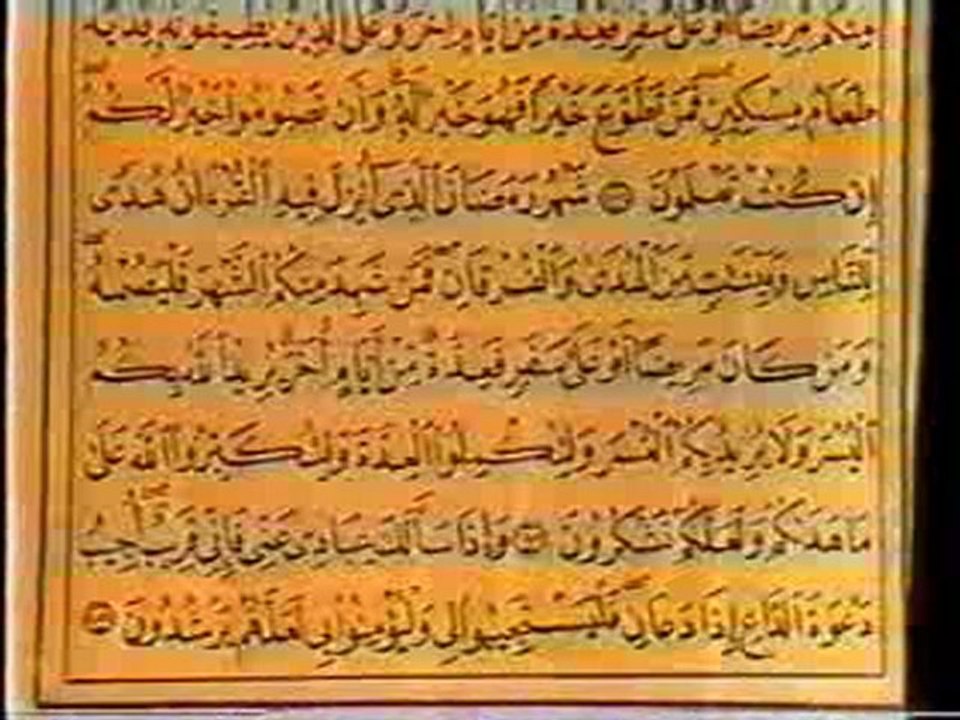 مِنكُم مَّرِيضًا أَوْ عَلَىٰ سَفَرٍ فَعِدَّةٌ مِّنْ أَيَّامٍ أُخَرَ وَعَلَى الَّذِينَ يُطِيقُونَهُ فِدْيَةٌ
طَعَامُ مِسْكِينٍ فَمَن تَطَوَّعَ خَيْرًا فَهُوَ خَيْرٌ لَّهُ وَأَن تَصُومُوا خَيْرٌ لَّكُمْ
إِن كُنتُمْ تَعْلَمُونَ ۝ شَهْرُ رَمَضَانَ الَّذِي أُنزِلَ فِيهِ الْقُرْءَانُ هُدًى
لِّلنَّاسِ وَبَيِّنَٰتٍ مِّنَ الْهُدَىٰ وَالْفُرْقَانِ فَمَن شَهِدَ مِنكُمُ الشَّهْرَ فَلْيَصُمْهُ
وَمَن كَانَ مَرِيضًا أَوْ عَلَىٰ سَفَرٍ فَعِدَّةٌ مِّنْ أَيَّامٍ أُخَرَ يُرِيدُ اللَّهُ بِكُمُ
الْيُسْرَ وَلَا يُرِيدُ بِكُمُ الْعُسْرَ وَلِتُكْمِلُوا الْعِدَّةَ وَلِتُكَبِّرُوا اللَّهَ عَلَىٰ
مَا هَدَىٰكُمْ وَلَعَلَّكُمْ تَشْكُرُونَ ۝ وَإِذَا سَأَلَكَ عِبَادِي عَنِّي فَإِنِّي قَرِيبٌ أُجِيبُ
دَعْوَةَ الدَّاعِ إِذَا دَعَانِ فَلْيَسْتَجِيبُوا لِي وَلْيُؤْمِنُوا بِي لَعَلَّهُمْ يَرْشُدُونَ ۝